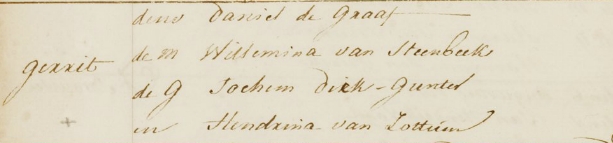 den v Daniel de Graaf
gerrit de m Willemina van Steenbeek
de G Jochem Dirk-Gunter
en Hendrina van Lottum